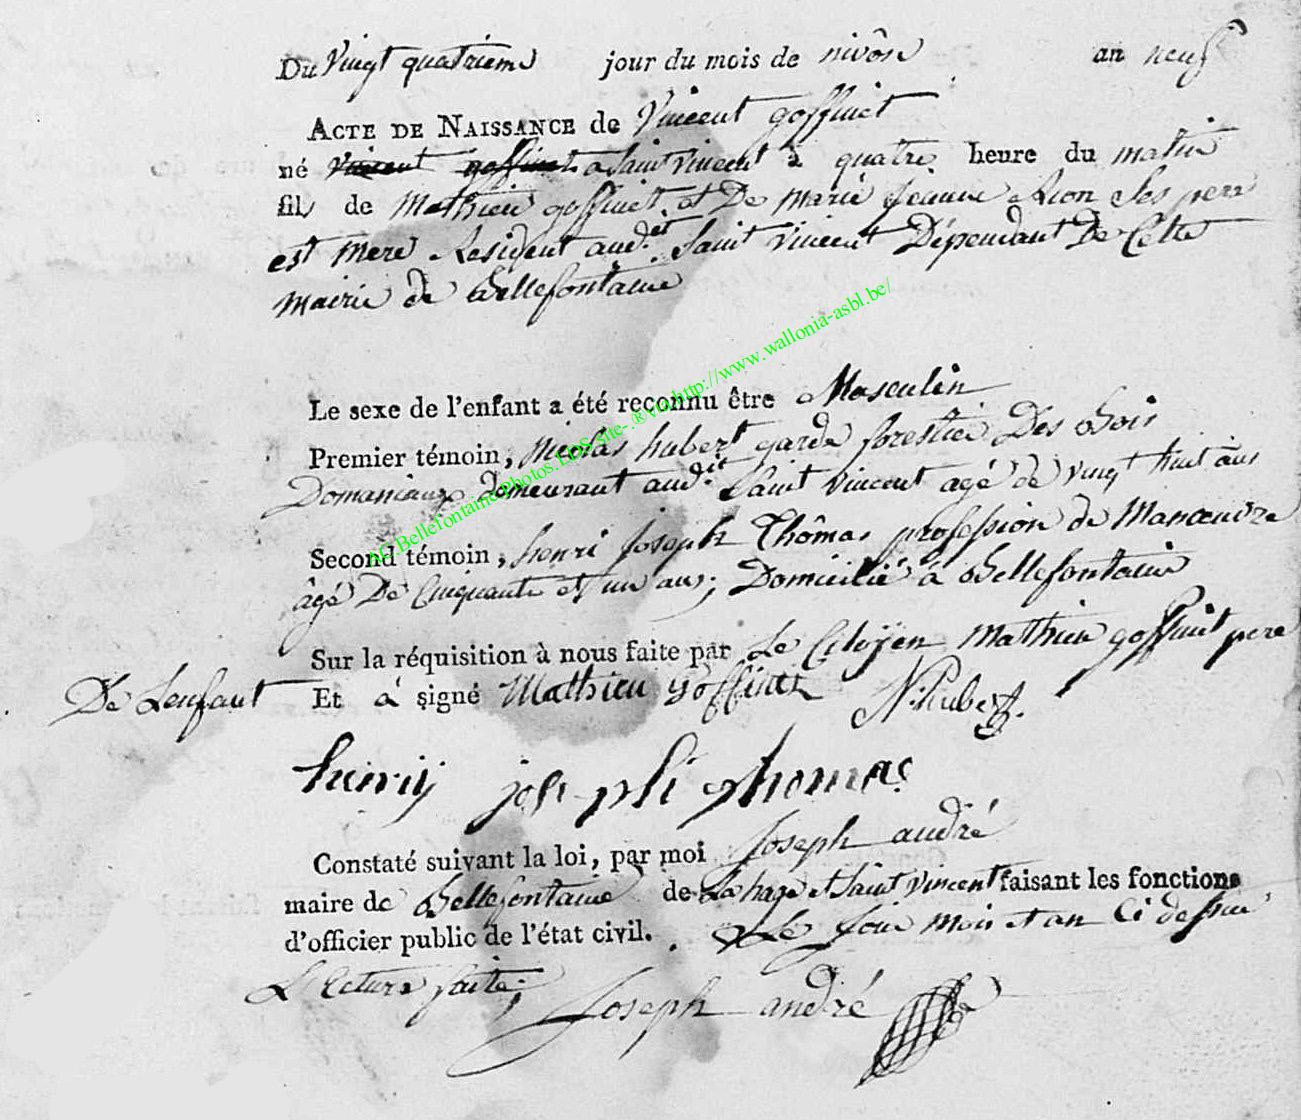 Du Vingt quatrieme jour du mois de nivôse an neuf
ACTE DE NAISSANCE de Vincent goffinet
né vincent goffinet a Saint vincent à quatre heure du matin
fils de Mathieu goffinet et De marie jeanne Lion Ses pere
est mere Resident aud.et Saint vincent Dépendant De Cette
mairie de Bellefontaine
Le sexe de l'enfant a été reconnu être Masculin
Premier témoin, nicolas hubert garde forestier Des Bois
Domaniaux demeurant aud.it Saint vincent agé de vingt huit ans
Second témoin, henri joseph Thômas profession de Manoeuvre
âgé De Cinquante et un ans; Domicilié à Bellefontaine
Sur la réquisition à nous faite par Le Citoÿen Mathieu goffinet pere
De Lenfant Et à signé Mathieu goffinet N. hubert.
henrij joseph thomas
Constaté suivant la loi, par moi Joseph andré
maire de Bellefontaine de La hage et Saint vincent faisant les fonctions
d'officier public de l'état civil. Le jour mois et an Ci dessus
Lecture faite; Joseph andré
AC Bellefontaine-Photos.LDS site-®via http://www.wallonia-asbl.be/